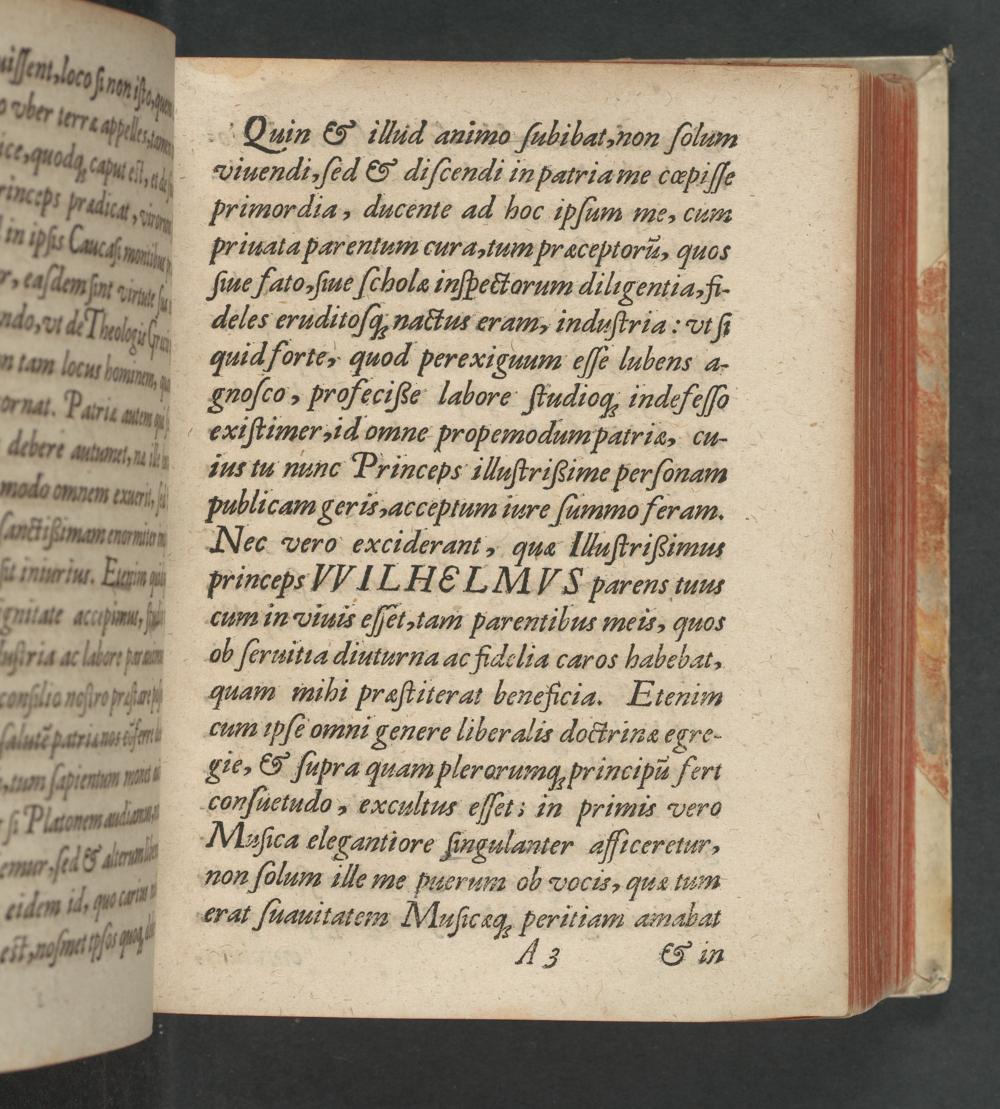 uissent, loco si non isto, quem
o vber terræ appelles, tamen
ice, quodq; caput est, et de
rinceps prædicat, virorum
in ipsis Caucasi montibus
r, easdem sint virtute sua
ndo, vt de Theologis Græci
n tam locus hominem, qua
ornat. Patriæ autem qui
debere autumet, na ille
modo omnem exuerit, sed
sanctißimam enormiter
sit iniurius. Etenim quid
gnitate accepimus,
dustria ac labore
consilio nostro præstare
salutē patria nos
, tum sapientum monet
r si Platonem audiamus,
emur, sed & alterum
eidem id, quo carius
est, nosmet ipsos quoq;
Quin & illud animo subibat, non solum
viuendi, sed & discendi in patria me cœpisse
primordia, ducente ad hoc ipsum me, cum
priuata parentum cura, tum præceptorū, quos
siue fato, siue scholæ inspectorum diligentia, fi-
deles eruditosq; nactus eram, industria: vt si
quid forte, quod perexiguum esse lubens a-
gnosco, profeciße labore studioq; indefesso
existimer, id omne propemodum patriæ, cu-
ius tu nunc Princeps illustrißime personam
publicam geris, acceptum iure summo feram.
Nec vero exciderant, quæ Illustrißimus
princeps VVILHELMVS parens tuus
cum in viuis esset, tam parentibus meis, quos
ob seruitia diuturna ac fidelia caros habebat,
quam mihi præstiterat beneficia. Etenim
cum ipse omni genere liberalis doctrinæ egre-
gie, & supra quam plerorumq; principū fert
consuetudo, excultus esset; in primis vero
Musica elegantiore singulanter afficeretur,
non solum ille me puerum ob vocis, quæ tum
erat suauitatem Musicæq; peritiam amabat
A 3 & in